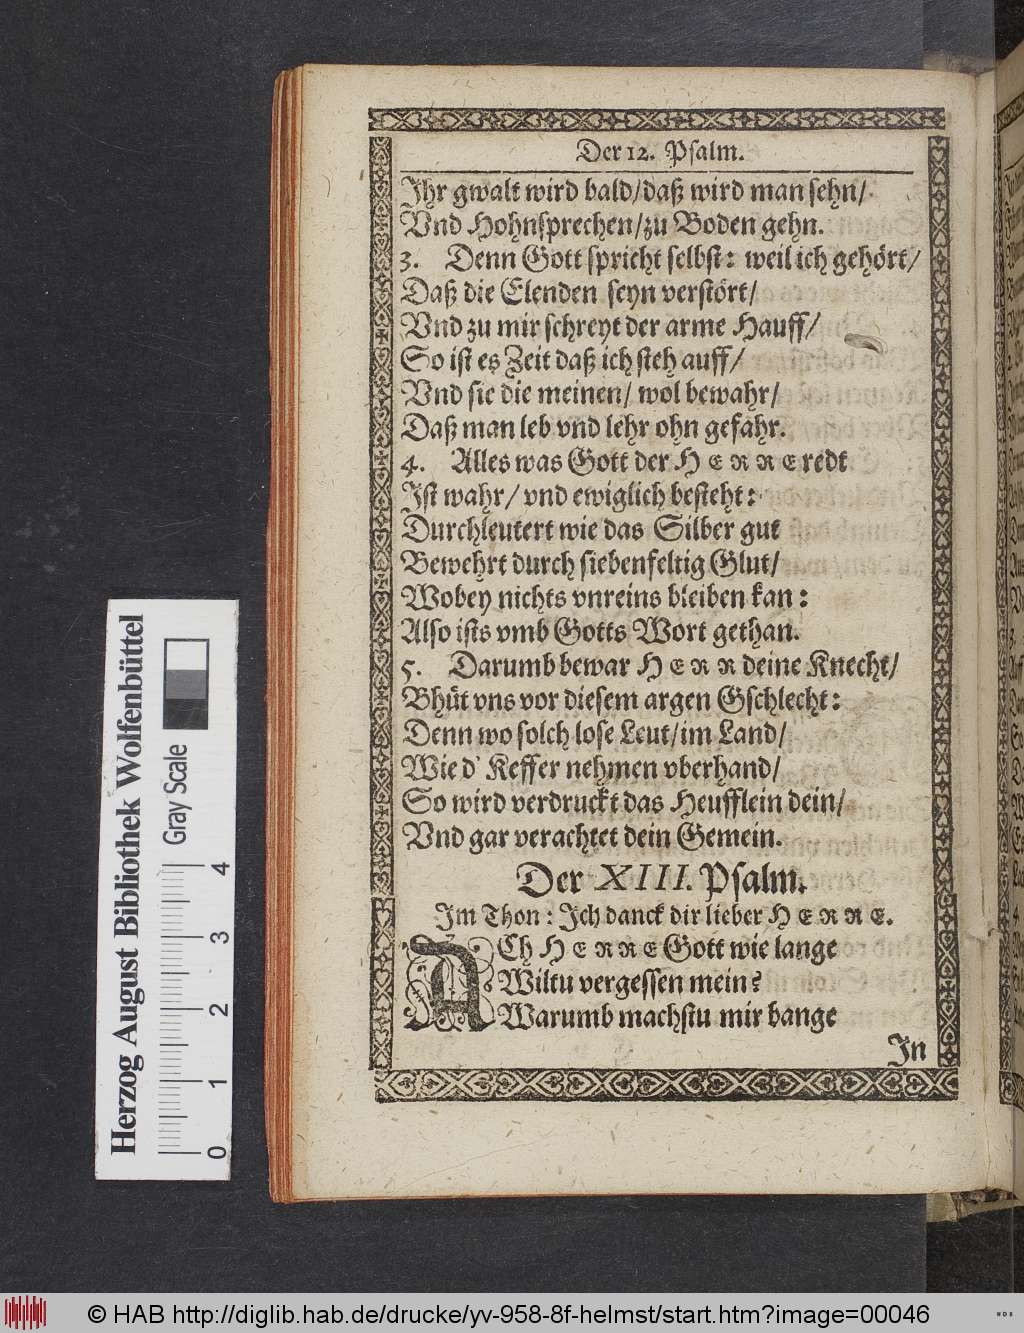 Der 12. Psalm.
Ihr gwalt wird bald/daß wird man sehn/
Vnd Hohnsprechen/zu Boden gehn.
3. Denn Gott spricht selbst: weil ich gehört/
Daß die Elenden seyn verstört/
Vnd zu mir schreyt der arme Hauff/
So ist es Zeit daß ich steh auff/
Vnd sie die meinen/ wol bewahr/
Daß man leb vnd lehr ohn gefahr.
4. Alles was Gott der HERRE redt
Ist wahr/ vnd ewiglich besteht:
Durchleutert wie das Silber gut
Bewehrt durch siebenfeltig Glut/
Wobey nichts vnreins bleiben kan:
Also ists vmb Gotts Wort gethan.
5. Darumb bewar HERR deine Knecht/
Bhüt vns vor diesem argen Gschlecht:
Denn wo solch lose Leut/im Land/
Wie d' Keffer nehmen vberhand/
So wird verdruckt das Heufflein dein/
Vnd gar verachtet dein Gemein.
Der XIII. Psalm.
Im Thon: Ich danck dir lieber HERRE.
ACh HERRE Gott wie lange
Wiltu vergessen mein?
Warumb machstu mir bange
In
Herzog August Bibliothek Wolfenbüttel
Gray Scale
0 1 2 3 4
© HAB http://diglib.hab.de/drucke/yv-958-8f-helmst/start.htm?image=00046